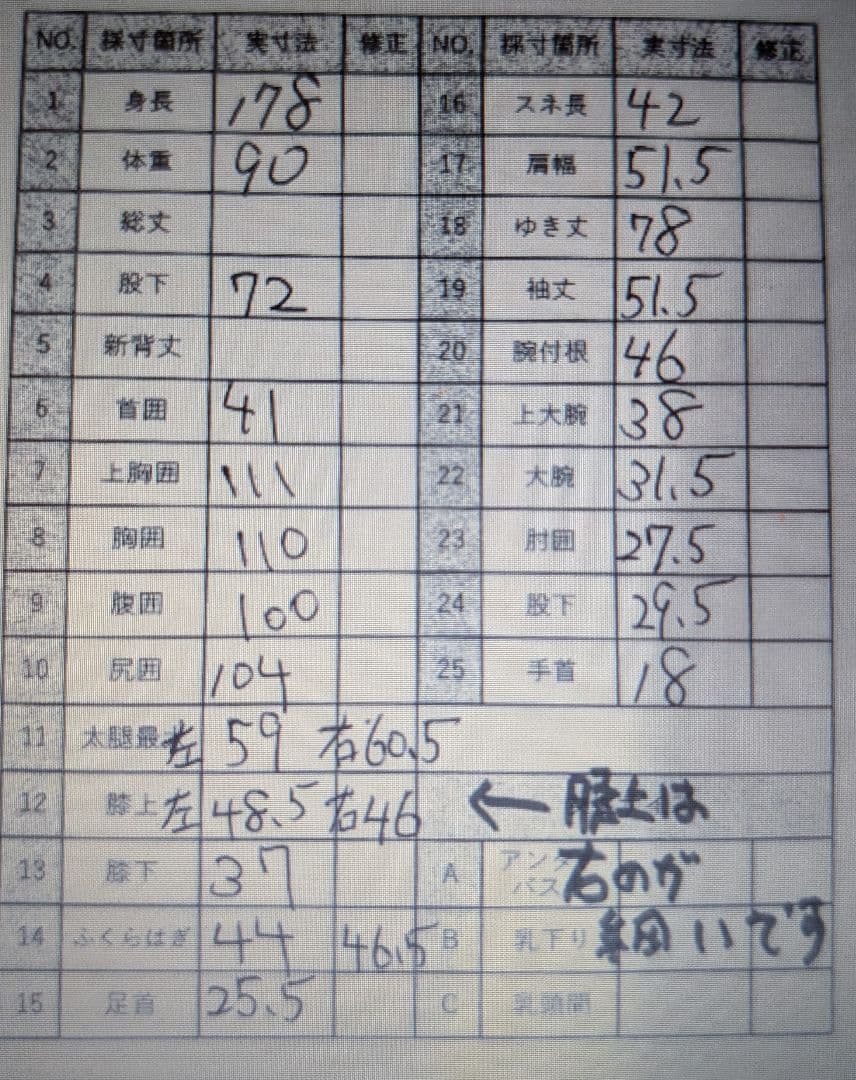 NO. 採寸箇所 実寸法 修正 NO. 採寸箇所 実寸法 修正
1 身長 178 16 スネ長 42
2 体重 90 17 肩幅 51.5
3 総丈 18 ゆき丈 78
4 股下 72 19 袖丈 51.5
5 新背丈 20 腕付根 46
6 首囲 41 21 上大腕 38
7 上胸囲 111 22 大腕 31.5
8 胸囲 110 23 肘囲 27.5
9 腹囲 100 24 股下 29.5
10 尻囲 104 25 手首 18
11 太腿最 左 59 右60.5
12 膝上 左 48.5 右46 ← 膝上は
13 膝下 37 A アンダ
バス 右のが
14 ふくらはぎ 44 46.5 B 乳下り 細いです
15 足首 25.5 C 乳頭間